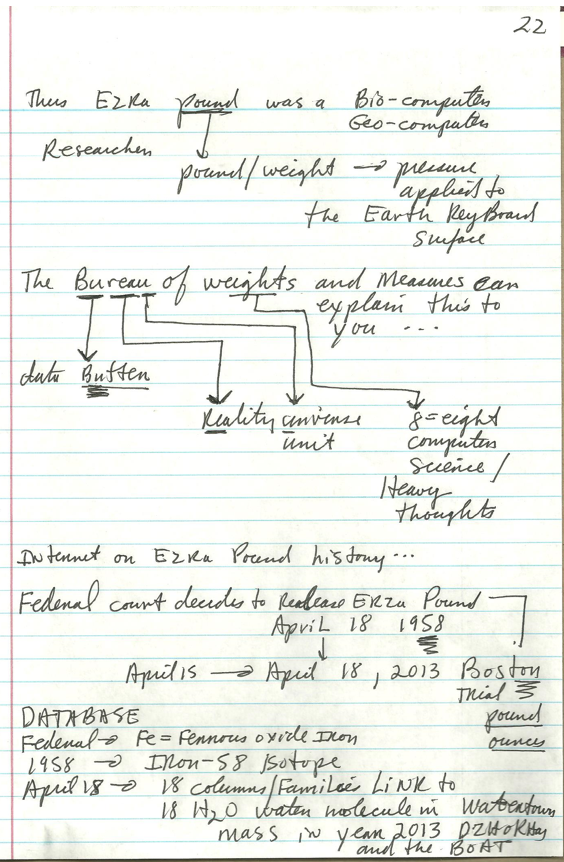 22
Thus Ezra pound was a Bio-computer
Geo-computer
Researcher
pound/weight → pressure
applied to
the Earth KeyBoard
Surface
The Bureau of weights and Measures can
explain this to
you ...
data Button
Reality universe
unit
8=eight
computer
science/
Heavy
thoughts
Internet on Ezra Pound history...
Federal court decides to Realease Ezra Pound
April 18 1958
April 15 → April 18, 2013 Boston
Trial
pound
ounces
DATABASE
Federal → Fe = Ferrous oxide Iron
1958 → Iron-58 Isotope
April 18 → 18 columns/Families LiNK to
18 H2O water molecule in Watertown
mass in year 2013 DZHOKHAR
and the BOAT